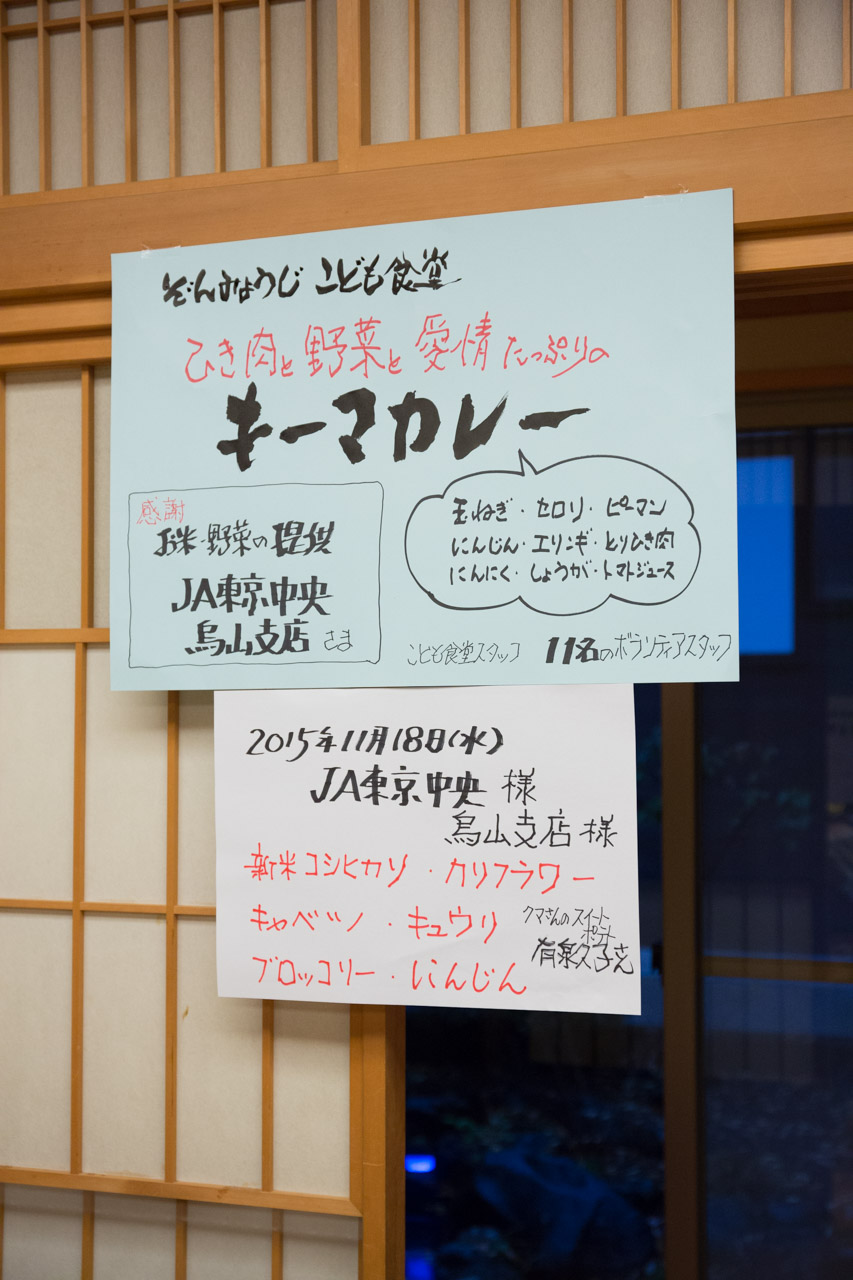 ぞんみょうじ こども食堂
ひき肉と野菜と愛情たっぷりの
キーマカレー
感謝
お米・野菜の提供
JA東京中央
烏山支店 さま
玉ねぎ・セロリ・ピーマン
にんじん・エリンギ・とりひき肉
にんにく・しょうが・トマトジュース
こども食堂スタッフ 11名のボランティアスタッフ
2015年11月18日(水)
JA東京中央 様
烏山支店 様
新米コシヒカリ・カリフラワー
キャベツ・キュウリ
クマさんのスイート
ポテト
有泉久子
ブロッコリー・にんじん